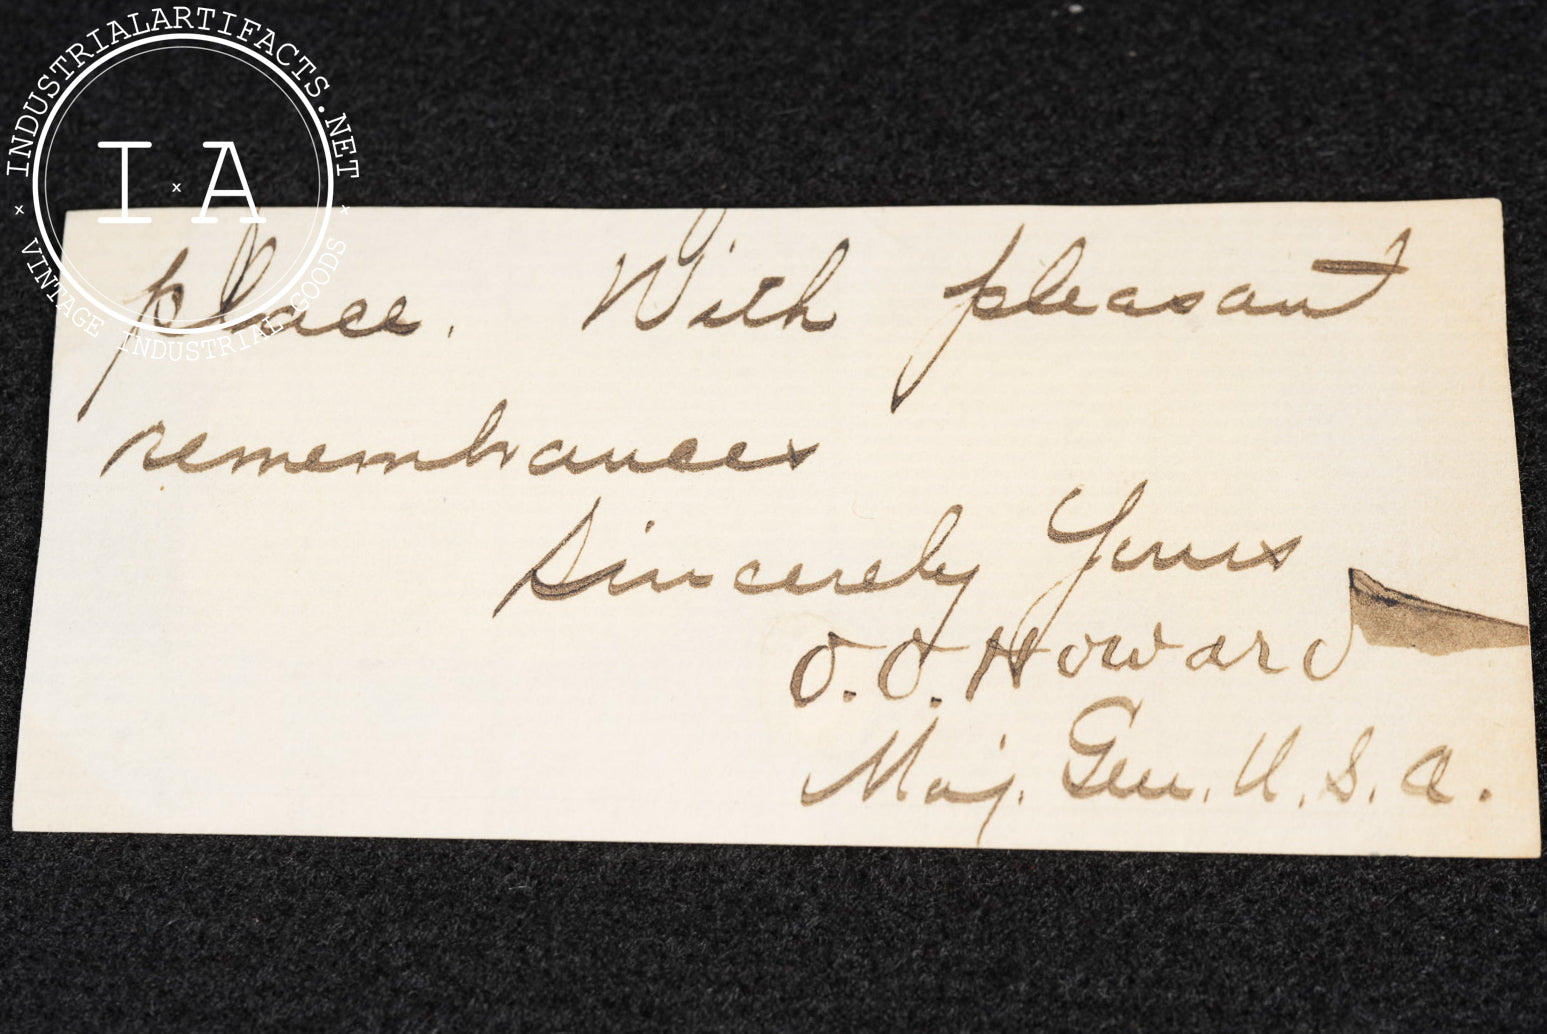 INDUSTRIALARTIFACTS.NET
I x A
VINTAGE INDUSTRIAL GOODS
place. With pleasant
remembrances
Sincerely Yours
O. O. Howard
Maj. Gen. U. S. A.